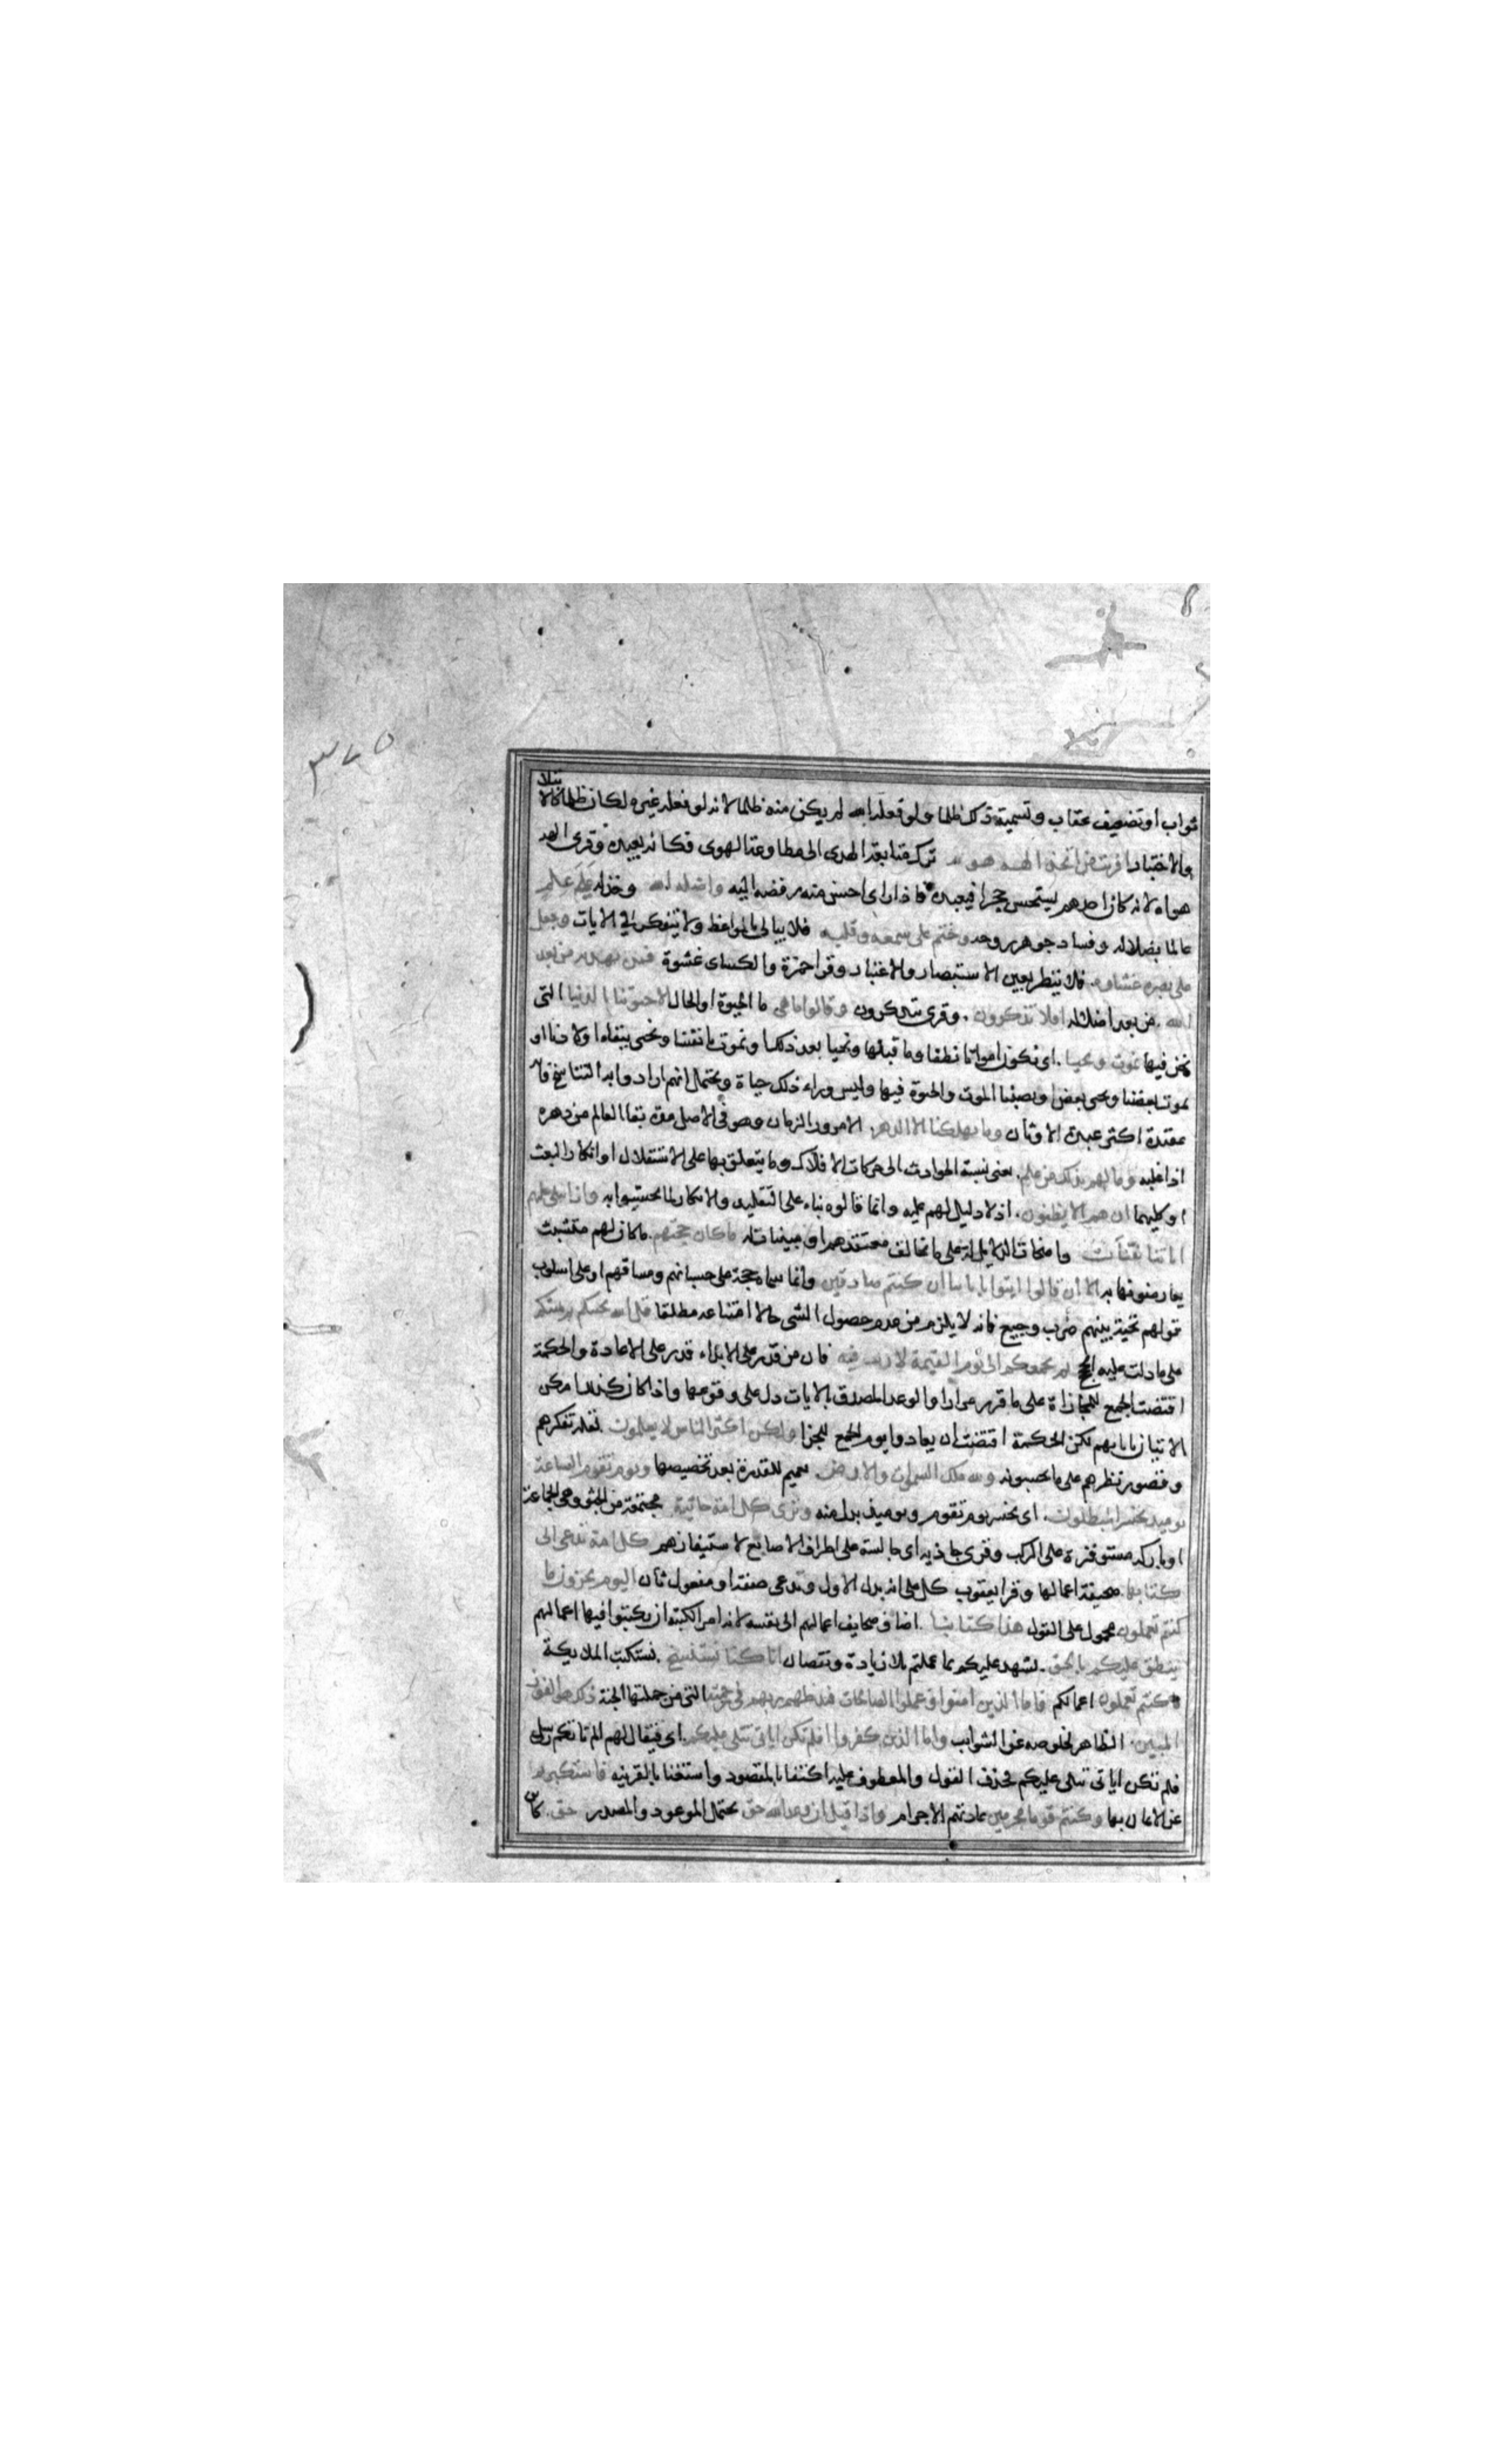 ٣٧٥
ثواب او تضعيف عقاب وتسمية ذلك ظلما ولو فعله الله لم يكن منه ظلما لانه لو فعله غيره لكان ظلما كالابتلا
والاختبار افرءيت من اتخذ الهه هويه ترك متابعة الهدى الى مطاوعة الهوى فكانه يعبده وقرئ الهة
هواه لانه كان احدهم يستحسن حجرا فيعبده فاذا راى احسن منه رفضه اليه واضله الله وخذله على علم
عالما بضلاله وفساد جوهر روحه وختم على سمعه وقلبه فلا يبالى بالمواعظ ولا يتفكر في الايات وجعل
على بصره غشاوه فلا ينظر بعين الاستبصار والاعتبار وقرا حمزة والكساى غشوة فمن يهديه من بعد
الله من بعد اضلاله افلا تذكرون وقرى تتذكرون وقالوا ما هى ما الحيوة او الحال الا حيوتنا الدنيا التى
نحن فيها نموت ونحيا اى نكون امواتا نطفا وما قبلها ونحيا بعد ذلك او نموت بانفسنا ونحيى ببقاء اولادنا او
نموت بعضنا ويحيى بعض او يصيبنا الموت والحيوة فيها وليس وراء ذلك حياة ويحتمل انهم ارادوا به التناسخ فانه
عقيدة اكثر عبدة الاوثان وما يهلكنا الا الدهر الا مرور الزمان وهو فى الاصل مدة بقا العالم من دهره
اذا غلبه وما لهم بذلك من علم يعنى نسبة الحوادث الى حركات الافلاك وما يتعلق بها على الاستقلال او انكار البعث
او كليهما ان هم الا يظنون اذ لا دليل لهم عليه وانما قالوه بناء على التقليد والانكار لما لم يحسوا به واذا تتلى عليهم
اياتنا بينات واضحات الدلالة على ما يخالف معتقدهم او مبينات له ما كان حجتهم ما كان لهم متشبث
يعارضونها به الا ان قالوا ايتوا باباينا ان كنتم صادقين وانما سماه حجة على حسبانهم ومساقهم او على اسلوب
قولهم تحية بينهم ضرب وجيع فانه لا يلزم من عدم حصول الشى حالا امتناعه مطلقا قل الله يحييكم ثم يميتكم
على ما دلت عليه الحجج ثم يجمعكم الى يوم القيمة لا ريب فيه فان من قدر على الابداء قدر على الاعادة والحكمة
اقتضت الجمع للمجازاة على ما قرر مرارا والوعد المصدق بالايات دل على وقوعها واذا كان كذلك امكن
الاتيان بابايهم لكن الحكمة اقتضت ان يعادوا يوم الجمع للجزا ولكن اكثر الناس لا يعلمون لقلة تفكرهم
وقصور نظرهم على ما يحسونه ولله ملك السموات والارض تعميم للقدرة بعد تخصيصها ويوم تقوم الساعة
يوميذ يخسر المبطلون اى يخسر يوم تقوم ويوميذ بدل منه وترى كل امة جاثية مجتمعة من الجثوة وهى الجماعة
او باركة مستوفزة على الركب وقرى جاذية اى جالسة على اطراف الاصابع لاستيفازهم كل امة تدعى الى
كتابها صحيفة اعمالها وقرا يعقوب كل على انه بدل الاول وتدعى صفة او مفعول ثان اليوم تجزون ما
كنتم تعملون محمول على القول هذا كتابنا اضاف صحايف اعمالهم الى نفسه لانه امر الكتبة ان يكتبوا فيها اعمالهم
ينطق عليكم بالحق يشهد عليكم بما عملتم بلا زيادة ونقصان انا كنا نستنسخ نستكتب الملايكة
ما كنتم تعملون اعمالكم فاما الذين امنوا وعملوا الصالحات فيدخلهم ربهم فى رحمته التى من جملتها الجنة ذلك هو الفوز
المبين الظاهر لخلوصه عن الشوايب واما الذين كفروا افلم تكن اياتى تتلى عليكم اى فيقال لهم الم تاتكم رسلى
فلم تكن اياتى تتلى عليكم فحذف القول والمعطوف عليه اكتفا بالمقصود واستغنا بالقرينه فاستكبرتم
عن الايمان بها وكنتم قوما مجرمين عادتهم الاجرام واذا قيل ان وعد الله حق يحتمل الموعود والمصدر حق كاين